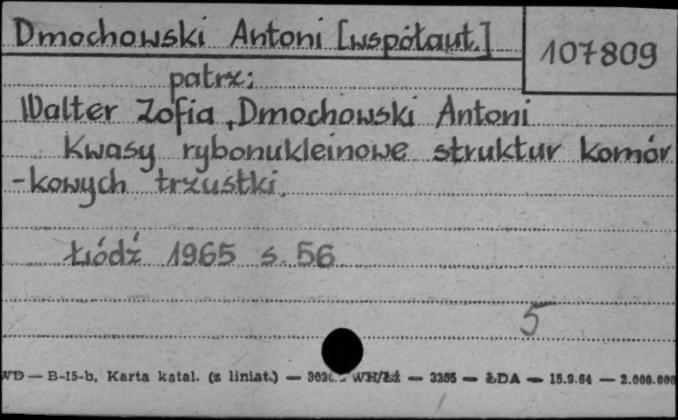 Dmochowski Antoni [współaut.]
107809
patrz:
Walter Zofia, Dmochowski Antoni
Kwasy rybonukleinowe struktur komór
-kowych trzustki.
Łódź 1965 s. 56
5
WD — B-15-b, Karta katal. (z liniat.) — WH/Łż — 3255 — ŁDA — 15.9.64 — 2.000.000